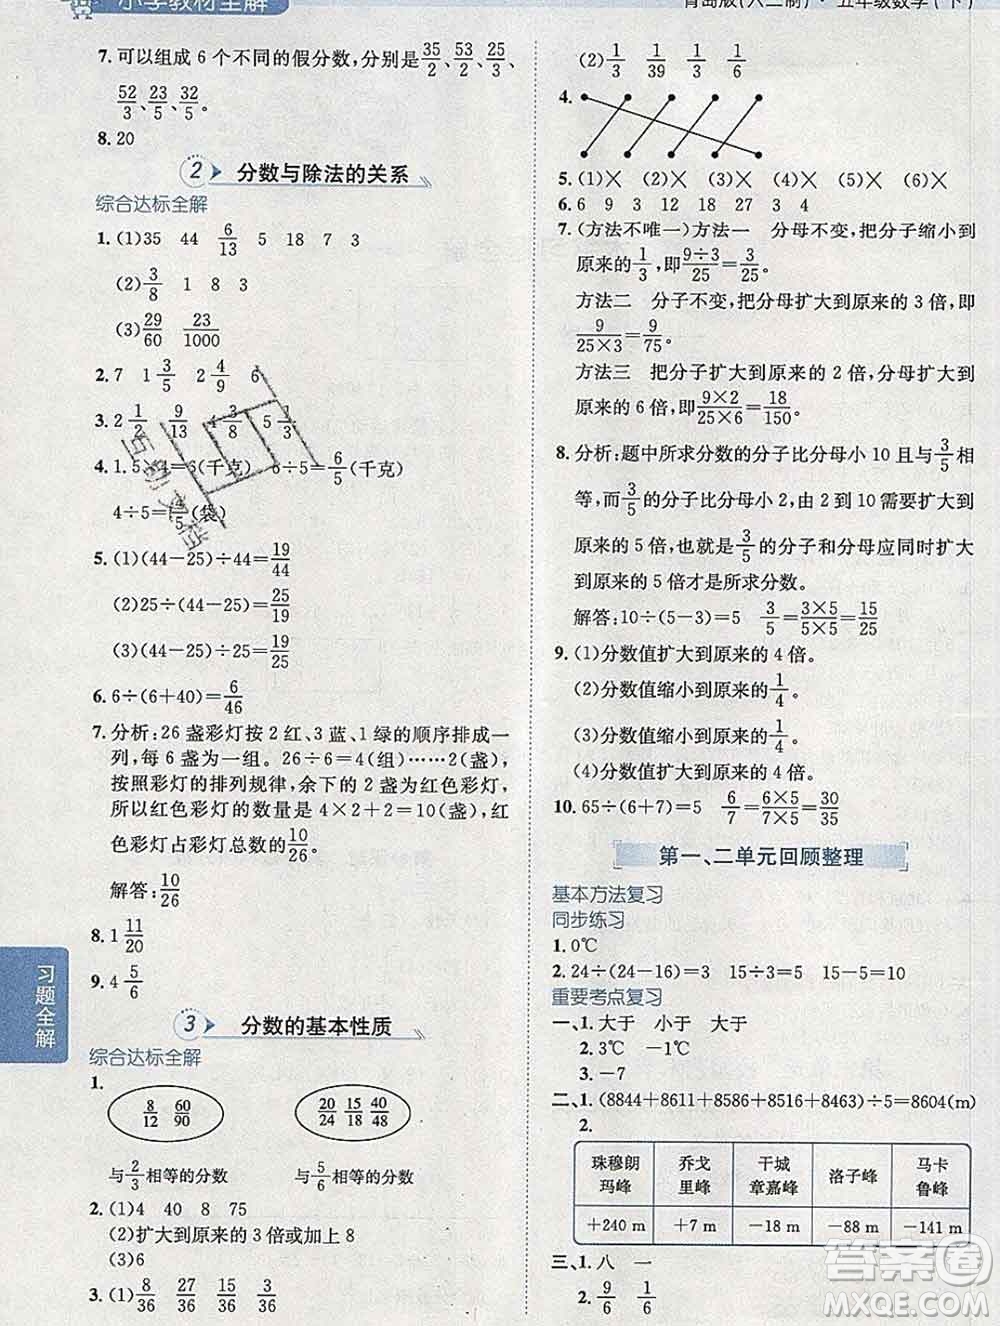 小学教材全解
青岛版(六三制)·五年级数学(下)
7. 可以组成 6 个不同的假分数，分别是35/2、53/2、25/3、
52/3、23/5、32/5。
8. 20
2 分数与除法的关系
综合达标全解
1. (1)35 44 6/13 5 18 7 3
(2)3/8 1 8 3
(3)29/60 23/1000
2. 7 1 3/5 2 4/9 6
3. 2 1/2 9/13 4 3/8 5 1/3
4. 1.5×4=6(千克) 6÷5=6/5(千克)
4÷5=4/5(袋)
5. (1)(44-25)÷44=19/44
(2)25÷(44-25)=25/19
(3)(44-25)÷25=19/25
6. 6÷(6+40)=6/46
7. 分析:26 盏彩灯按 2 红、3 蓝、1 绿的顺序排成一
列,每 6 盏为一组。26÷6=4(组)……2(盏),
按照彩灯的排列规律,余下的 2 盏为红色彩灯,
所以红色彩灯的数量是 4×2+2=10(盏),红
色彩灯占彩灯总数的10/26。
解答:10/26
8. 1 11/20
9. 4 5/6
3 分数的基本性质
综合达标全解
1.
8/12 60/90
20/24 15/18 40/48
与2/3相等的分数 与5/6相等的分数
2. (1)4 40 8 75
(2)扩大到原来的 3 倍或加上 8
(3)6
3. (1)8/36 27/36 15/36 3/36
习题全解
(2)1/3 1/39 1/3 1/6
4.
5. (1)× (2)× (3)× (4)× (5)√ (6)×
6. 6 9 3 12 18 27 3 4
7. (方法不唯一)方法一 分母不变,把分子缩小到
原来的1/3,即9÷3/25=3/25。
方法二 分子不变,把分母扩大到原来的 3 倍,即
9/25×3=9/75。
方法三 把分子扩大到原来的 2 倍,分母扩大到
原来的 6 倍,即9×2/25×6=18/150。
8. 分析:题中所求分数的分子比分母小 10 且与3/5相
等,而3/5的分子比分母小 2,由 2 到 10 需要扩大到
原来的 5 倍,也就是3/5的分子和分母应同时扩大
到原来的 5 倍才是所求分数。
解答:10÷(5-3)=5 3/5=3×5/5×5=15/25
9. (1)分数值扩大到原来的 4 倍。
(2)分数值缩小到原来的1/4。
(3)分数值缩小到原来的1/4。
(4)分数值扩大到原来的 4 倍。
10. 65÷(6+7)=5 6/7=6×5/7×5=30/35
第一、二单元回顾整理
基本方法复习
同步练习
1. 0℃
2. 24÷(24-16)=3 15÷3=5 15-5=10
重要考点复习
一、1. 大于 小于 大于
2. 3℃ -4℃
3. -7
二、1. (8844+8611+8586+8516+8463)÷5=8604(m)
2.
珠穆朗玛峰 乔戈里峰 干城章嘉峰 洛子峰 马卡鲁峰
+240 m +7 m -18 m -88 m -141 m
三、1. 八 一
2. 9/6 6/9 1/6
答案圈
MXQE.COM